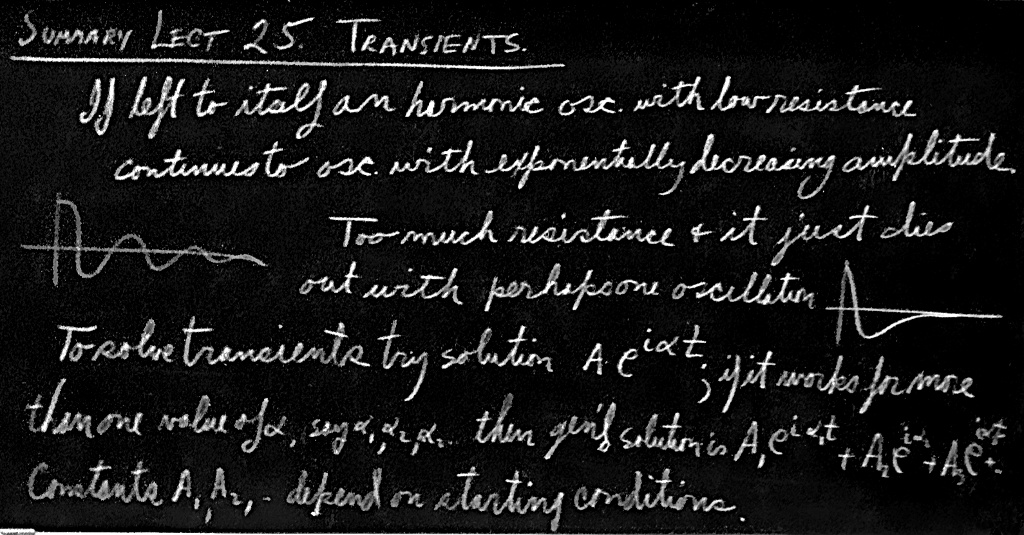 SUMMARY LECT 25. TRANSIENTS.
If left to itself an harmonic osc. with low resistance
continues to osc. with exponentially decreasing amplitude.
Too much resistance & it just dies
out with perhaps one oscillation
To solve transients try solution A e^{iαt}; if it works for more
than one value of α, say α₁, α₂, α₃.. then gen'l solution is A₁e^{iα₁t} + A₂e^{iα₂} + A₃e^{iαt} +..
Constants A₁, A₂, .. depend on starting conditions.